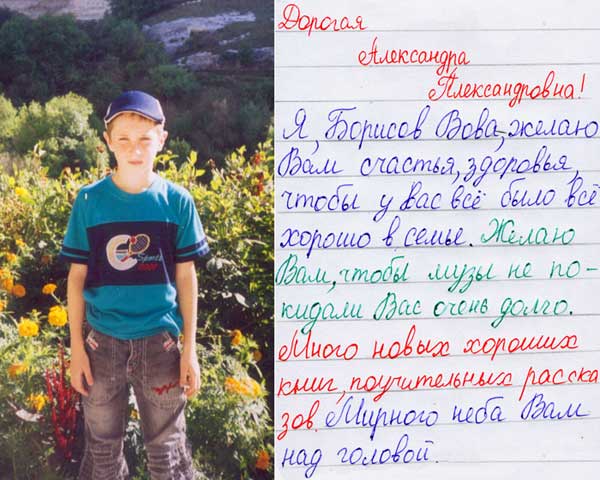 Дорогая
Александра
Александровна!
Я, Борисов Вова, желаю
Вам счастья, здоровья,
чтобы у Вас всё было всё
хорошо в семье. Желаю
Вам, чтобы музы не по-
кидали Вас очень долго.
Много новых хороших
книг, поучительных расска
зов. Мирного неба Вам
над головой.
C
Sports